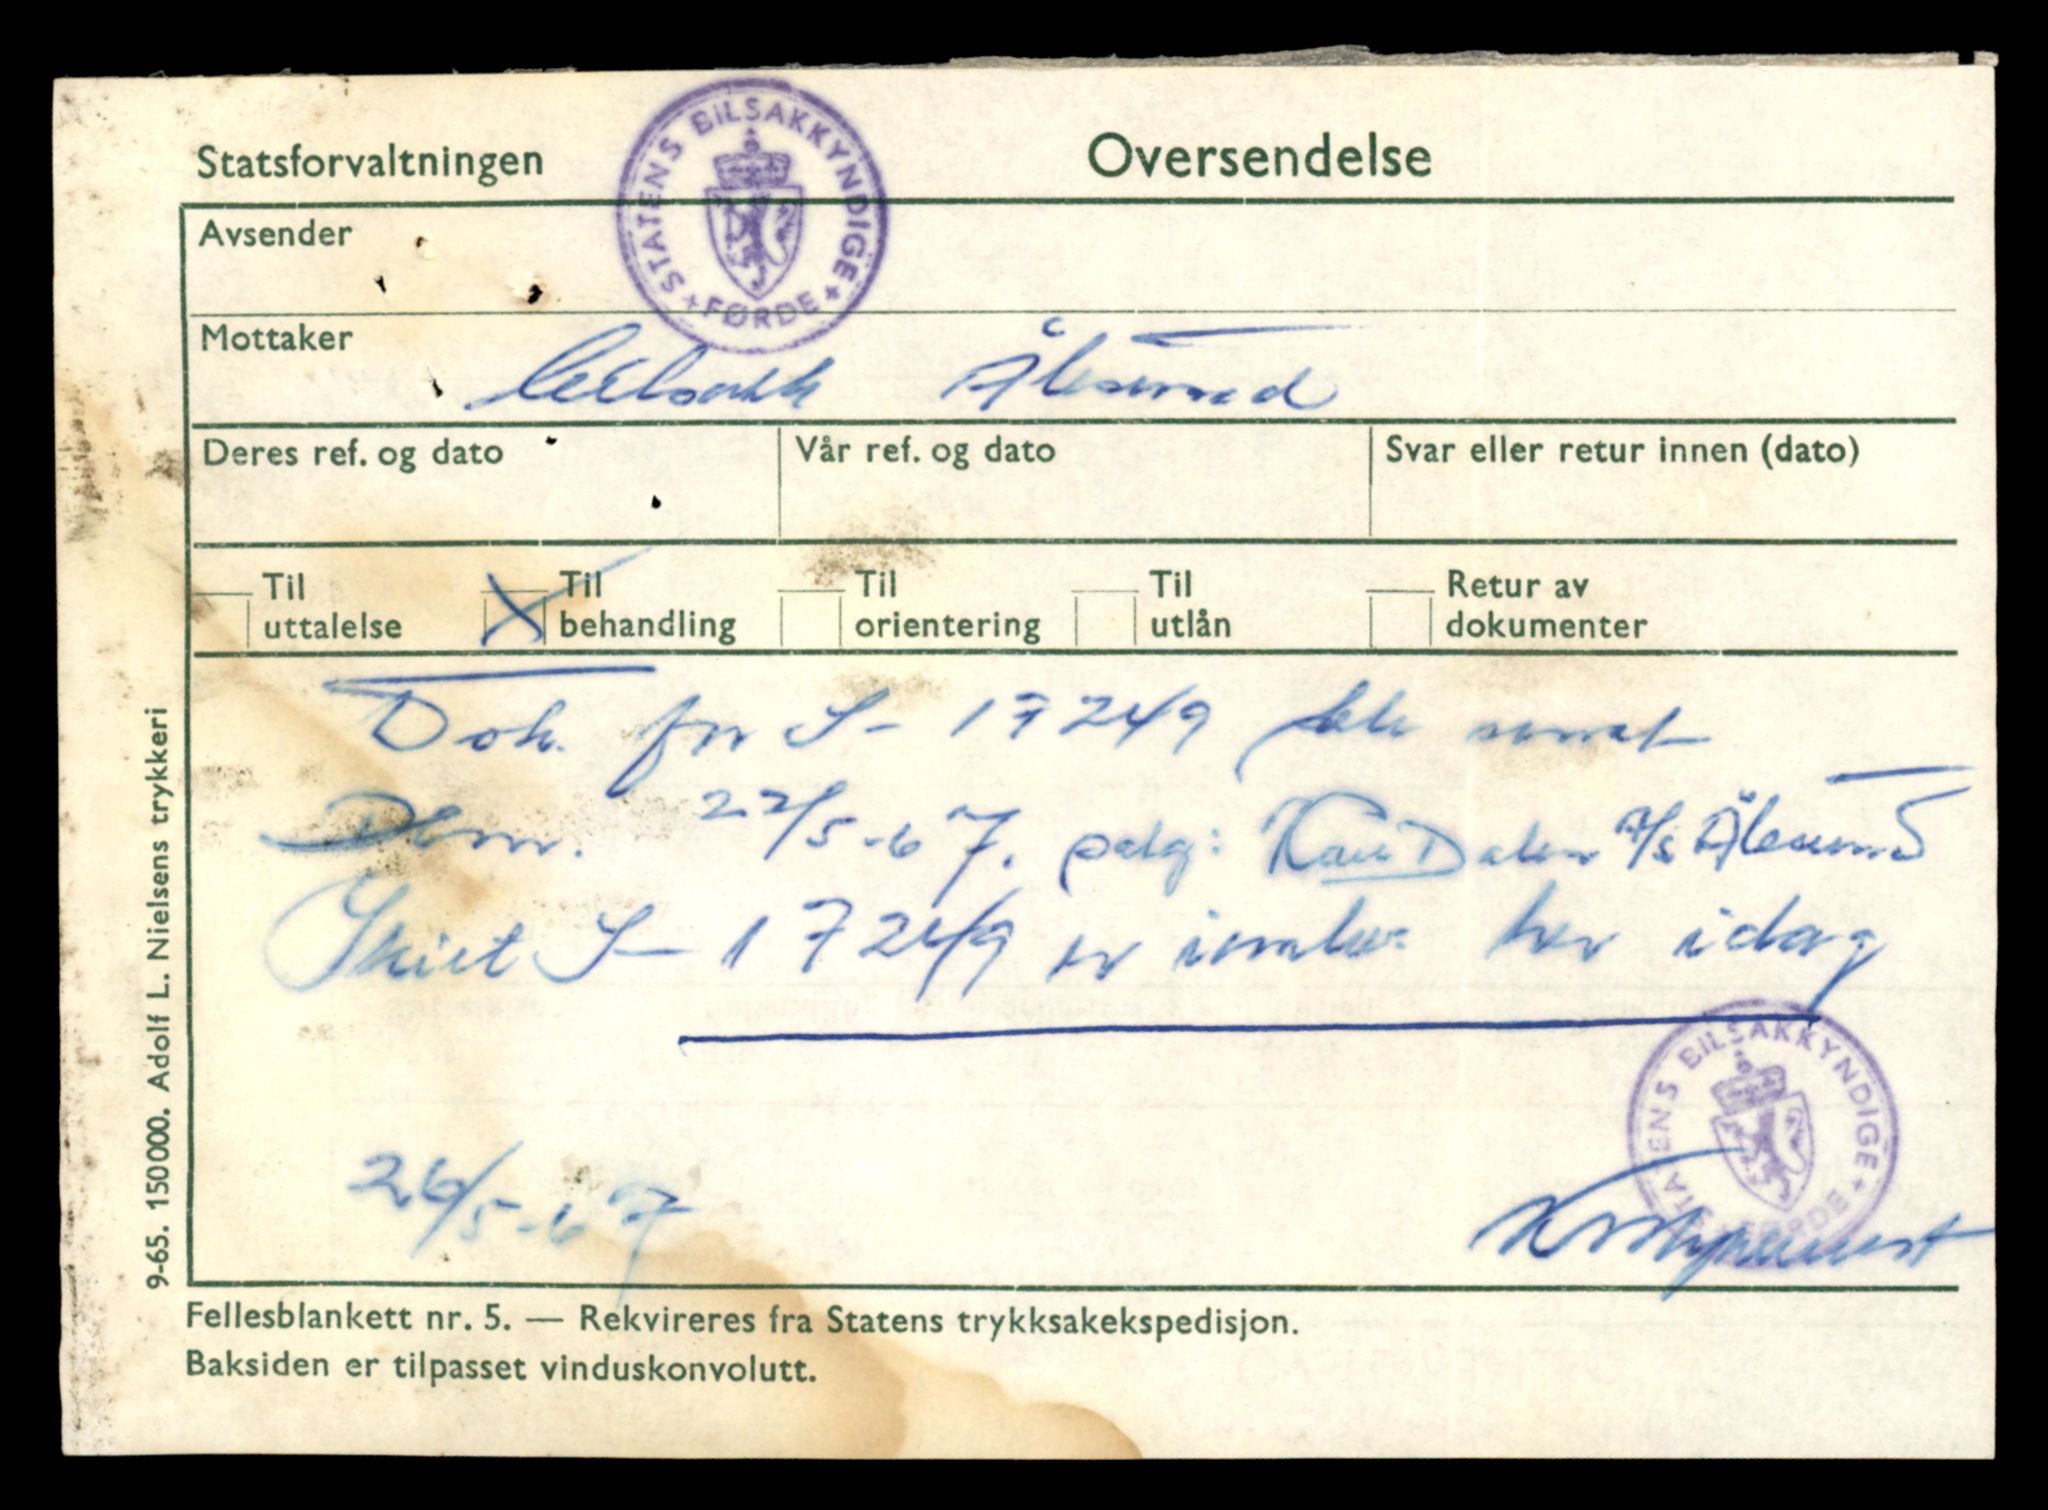 Statsforvaltningen
Oversendelse
STATENS BILSAKKYNDIGE
FØRDE
Avsender
Mottaker
Ålesund
Deres ref. og dato
Vår ref. og dato
Svar eller retur innen (dato)
Til uttalelse
Til behandling
Til orientering
Til utlån
Retur av dokumenter
Dok. for S- 17249 ble sendt
22/5-67. Dalen A/S Ålesund
Skilt S- 17249 er innlev. her idag
STATENS BILSAKKYNDIGE
FØRDE
26/5-67
9-65. 150000. Adolf L. Nielsens trykkeri
Fellesblankett nr. 5. — Rekvireres fra Statens trykksakekspedisjon.
Baksiden er tilpasset vinduskonvolutt.